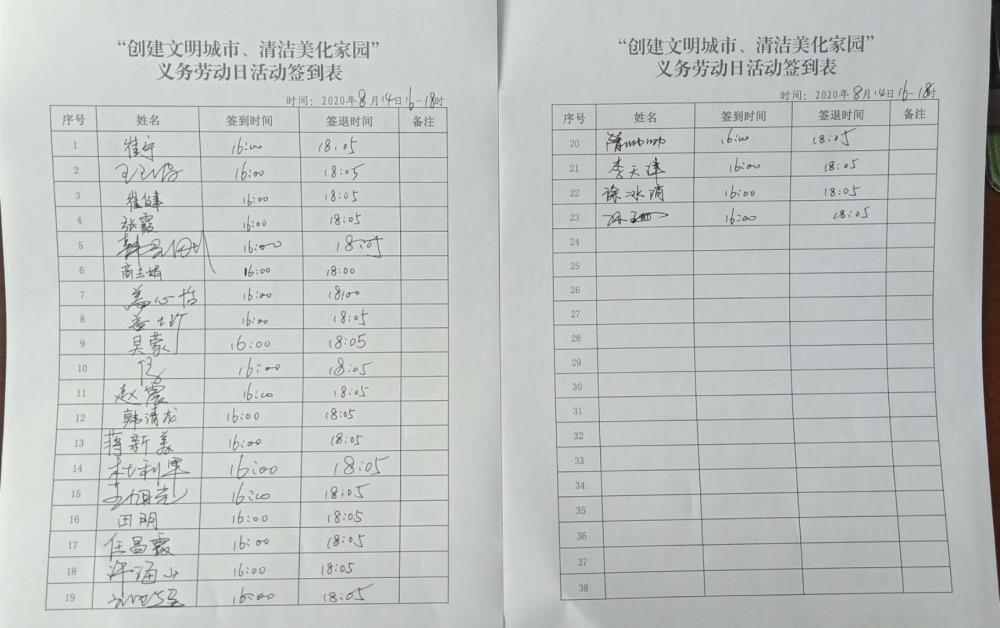 “创建文明城市、清洁美化家园”
义务劳动日活动签到表
时间：2020年8月14日16-18时
序号 姓名 签到时间 签退时间 备注
1 崔宁 16:00 18:05
2 16:00 18:05
3 崔健 16:00 18:05
4 张霞 16:00 18:05
5 16:00 18:05
6 商玉娟 16:00 18:00
7 16:00 18:00
8 16:00 18:05
9 吴蒙 16:00 18:05
10 16:00 18:05
11 赵震 16:00 18:05
12 韩清龙 16:00 18:05
13 蒋新美 16:00 18:05
14 杜利军 16:00 18:05
15 16:00 18:05
16 田明 16:00 18:05
17 任昌霞 16:00 18:05
18 16:00 18:05
19 16:00 18:05
“创建文明城市、清洁美化家园”
义务劳动日活动签到表
时间：2020年8月14日16-18时
序号 姓名 签到时间 签退时间 备注
20 16:00 18:05
21 李天津 16:00 18:05
22 徐冰清 16:00 18:05
23 16:00 18:05
24
25
26
27
28
29
30
31
32
33
34
35
36
37
38